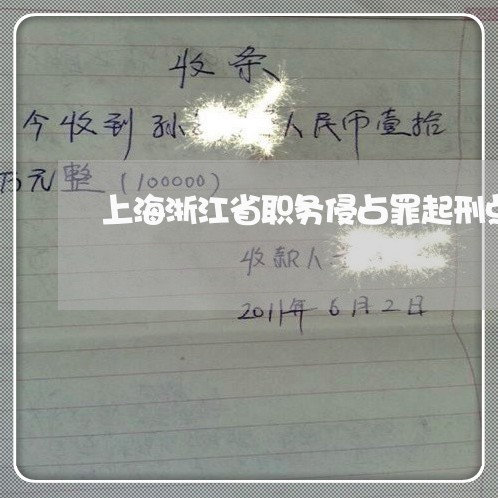 收条
今收到孙 人民币壹拾
万元整（100000）
上海浙江省职务侵占罪起刑
收款人
2011年6月2日